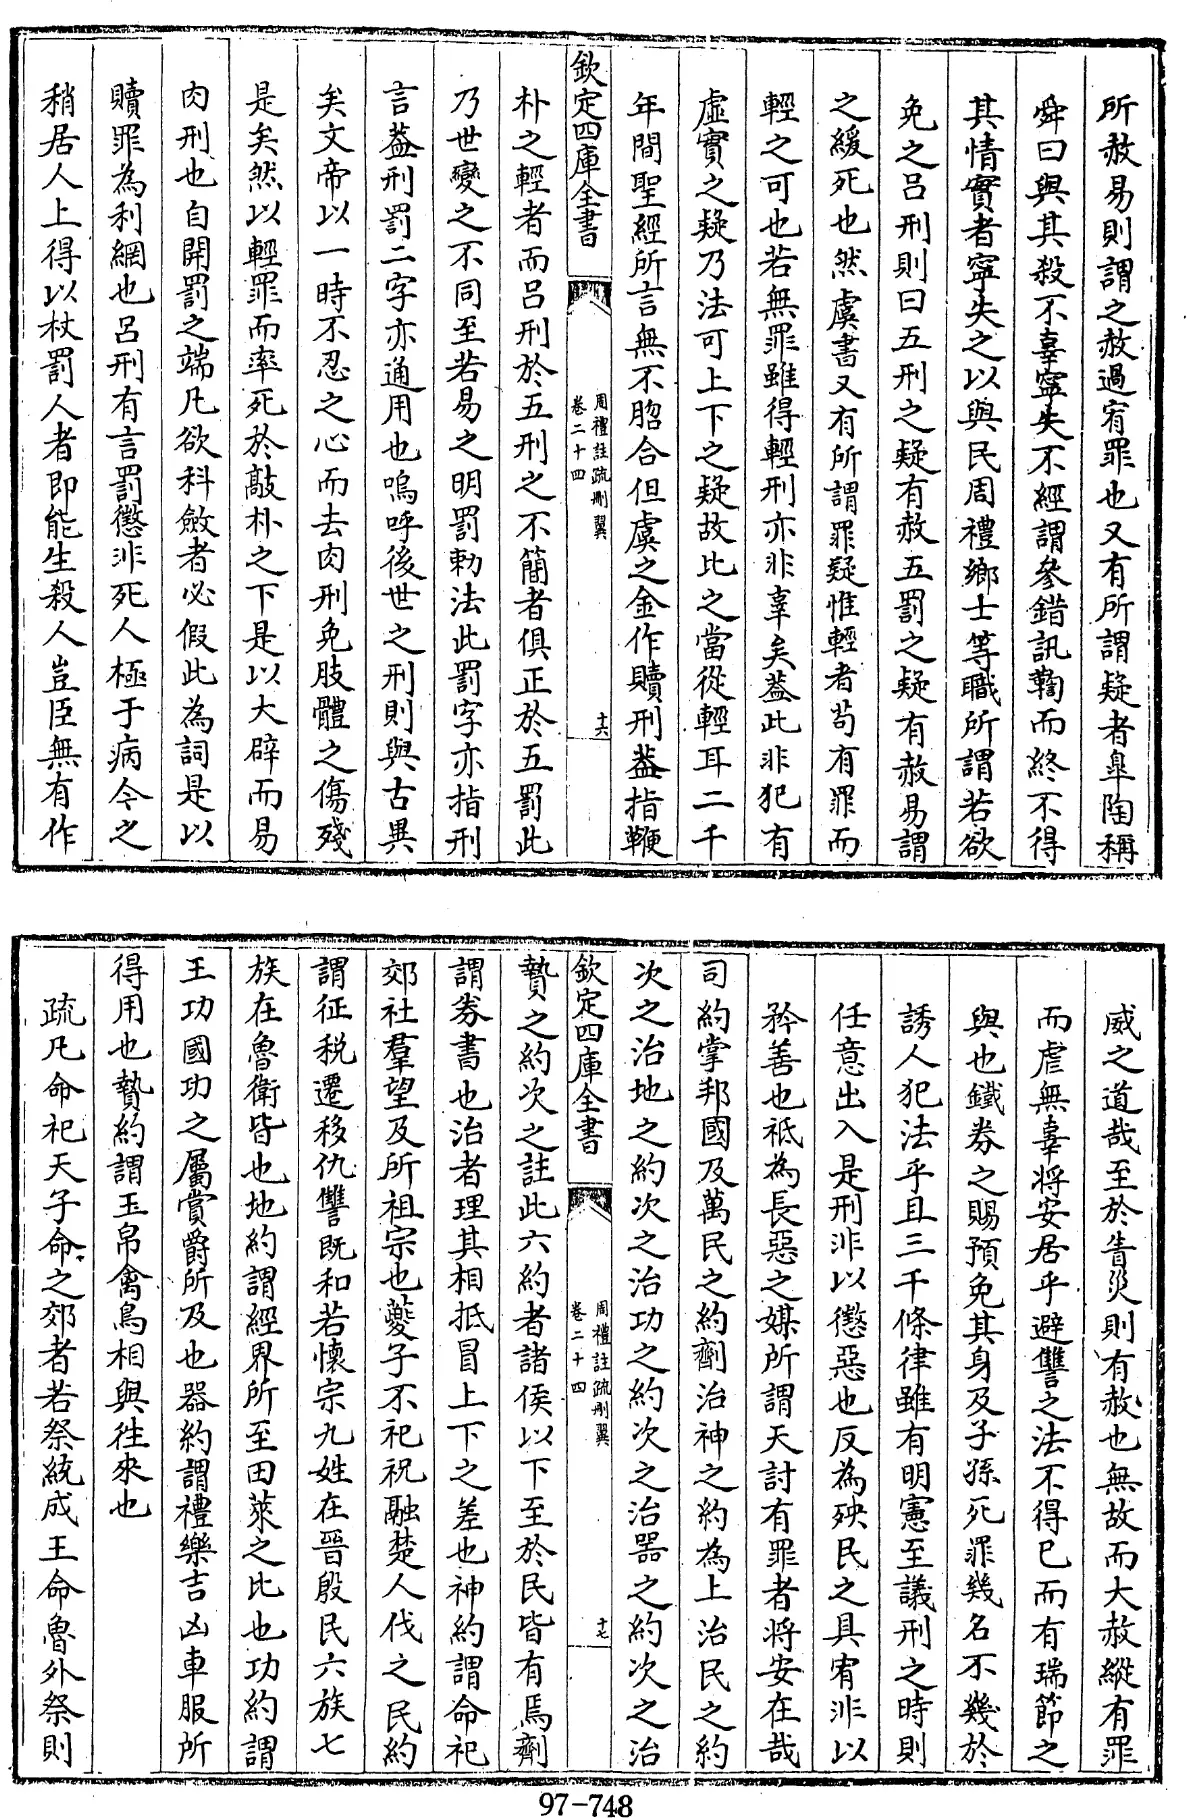 所赦易則謂之赦過宥罪也又有所謂疑者臯陶稱
舜曰與其殺不辜寜失不經謂參錯訊鞫而終不得
其情實者寜失之以與民周禮鄉士等職所謂若欲
免之吕刑則曰五刑之疑有赦五罰之疑有赦易謂
之緩死也然虞書又有所謂罪疑惟輕者茍有罪而
輕之可也若無罪雖得輕刑亦非辜矣葢此非犯有
虛實之疑乃法可上下之疑故比之當從輕耳二千
年間聖經所言無不脗合但虞之金作贖刑葢指鞭
欽定四庫全書
周禮註疏刪翼
卷二十四
十六
朴之輕者而吕刑於五刑之不簡者俱正於五罰此
乃世變之不同至若易之明罰勅法此罰字亦指刑
言葢刑罰二字亦通用也嗚呼後世之刑則與古異
矣文帝以一時不忍之心而去肉刑免肢體之傷殘
是矣然以輕罪而率死於敲朴之下是以大辟而易
肉刑也自開罰之端凡欲科斂者必假此為詞是以
贖罪為利網也吕刑有言罰懲非死人極于病今之
稍居人上得以杖罰人者即能生殺人豈臣無有作
威之道哉至於眚災則有赦也無故而大赦縱有罪
而虐無辜將安居乎避讐之法不得已而有瑞節之
與也鐵券之賜預免其身及子孫死罪幾名不幾於
誘人犯法乎且三千條律雖有明憲至議刑之時則
任意出入是刑非以懲惡也反為殃民之具宥非以
矜善也祗為長惡之媒所謂天討有罪者將安在哉
司約掌邦國及萬民之約劑治神之約為上治民之約
次之治地之約次之治功之約次之治器之約次之治
欽定四庫全書
周禮註疏刪翼
卷二十四
十七
贄之約次之註此六約者諸侯以下至於民皆有焉劑
謂券書也治者理其相抵冒上下之差也神約謂命祀
郊社羣望及所祖宗也夔子不祀祝融楚人伐之民約
謂征税遷移仇讐既和若懷宗九姓在晉殷民六族七
族在魯衛皆也地約謂經界所至田萊之比也功約謂
王功國功之屬賞爵所及也器約謂禮樂吉凶車服所
得用也贄約謂玉帛禽鳥相與徃來也
疏凡命祀天子命之郊者若祭統成王命魯外祭則
97-748